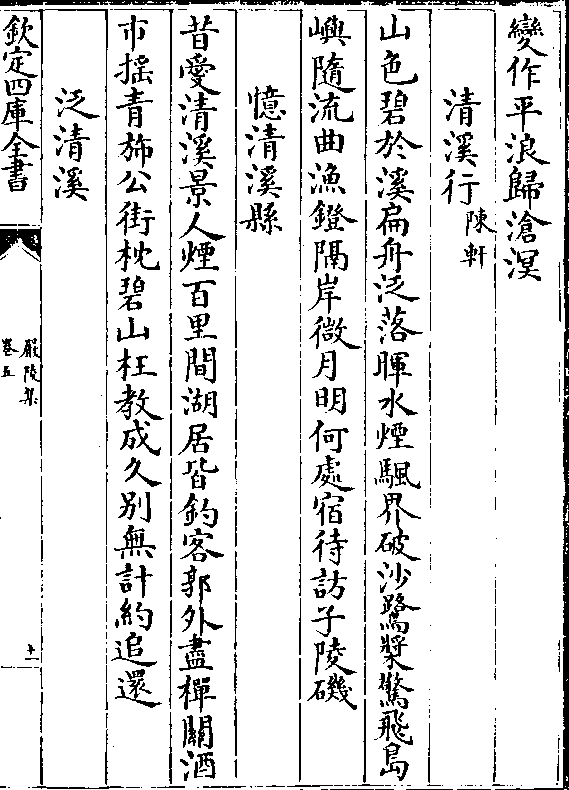 變作平浪歸滄溟
清溪行陳軒
山色碧於溪扁舟泛落暉水煙颿界破沙鷺槳驚飛島
嶼隨流曲漁鐙隔岸微月明何處宿待訪子陵磯
憶清溪縣
昔愛清溪景人煙百里間湖居皆釣客郭外盡樿關酒
市揺青斾公街枕碧山枉教成久别無計約追還
泛清溪
欽定四庫全書
嚴陵集
卷五
十一